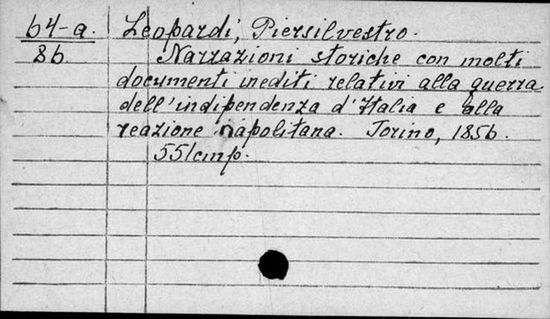 64-a. Leopardi, Piersilvestro.
86 Narrazioni storiche con molti
documenti inediti relativi alla guerra
dell'indipendenza d'Italia e alla
reazione napolitana. Torino, 1856.
551cmp.